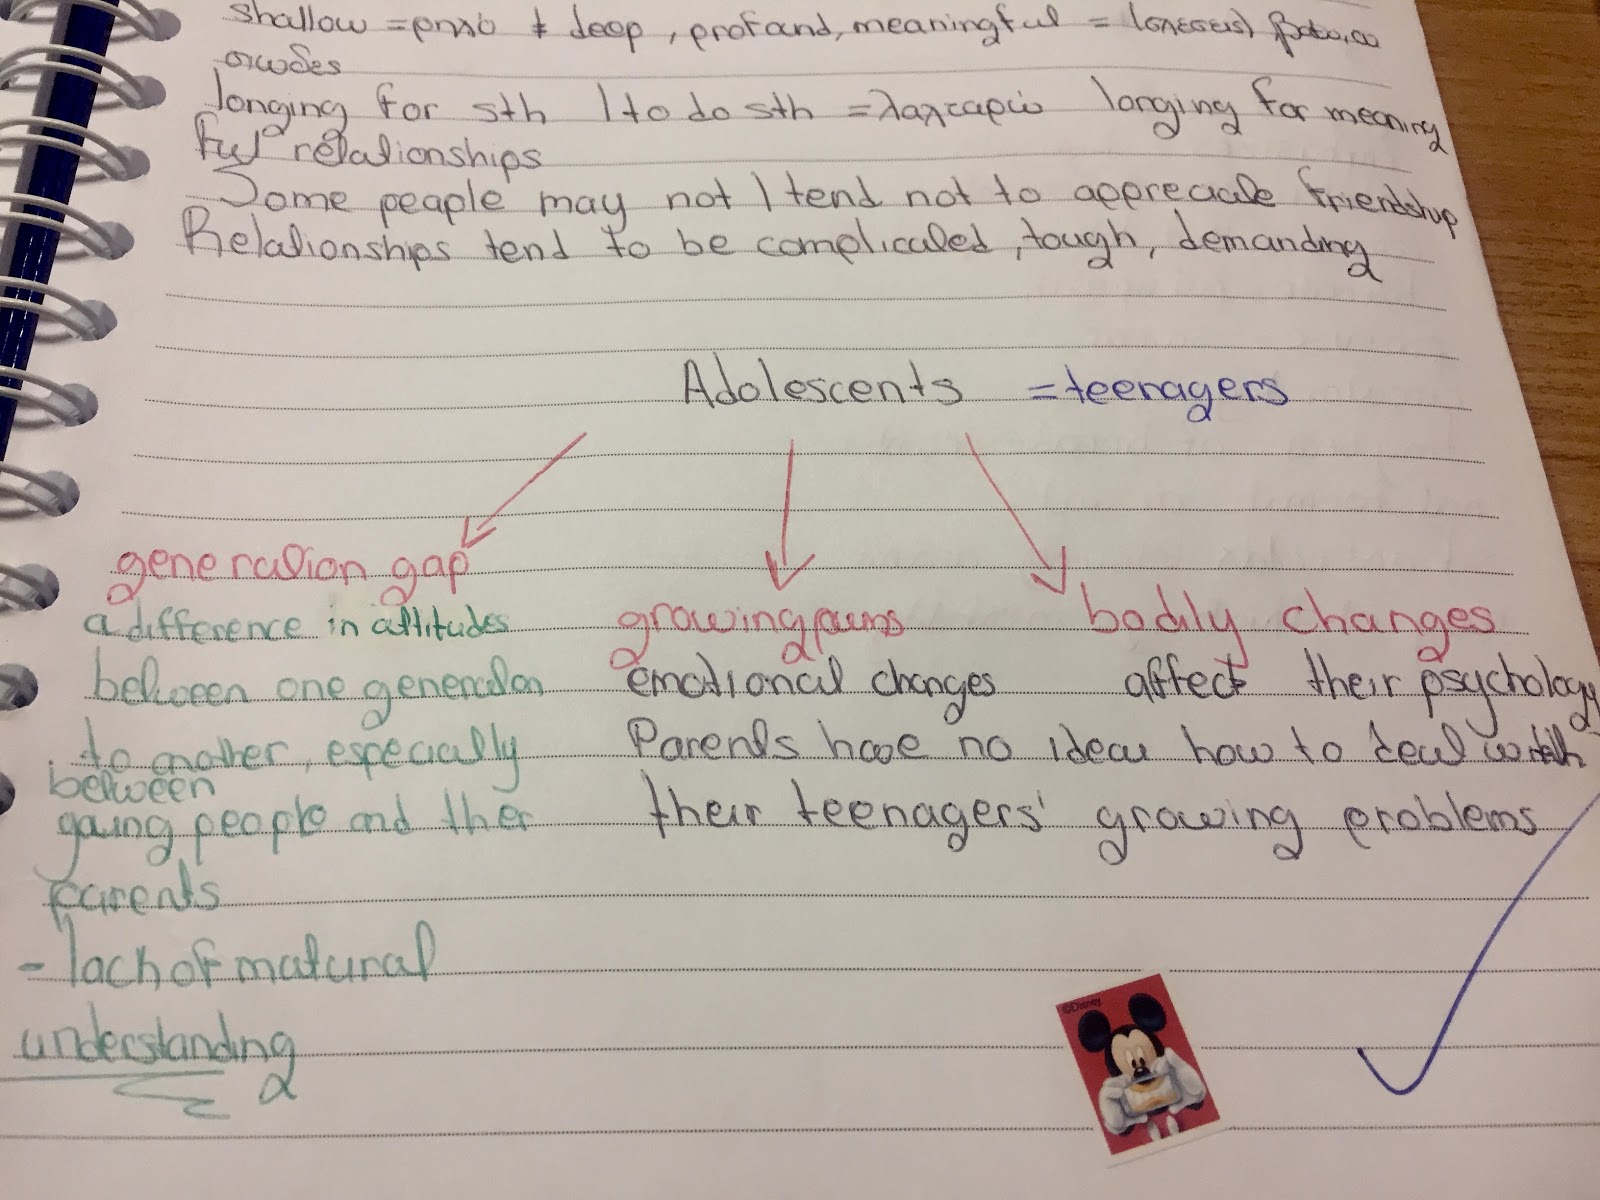 shallow = ρηχό ≠ deep, profand, meaningful = (σχέσεις) βαθιά,
ουσιώδες
longing for sth / to do sth = λαχταρώ longing for meaning
ful relationships
Some people may not / tend not to appreciate friendship
Relationships tend to be complicated, tough, demanding
Adolescents = teenagers
generation gap
a difference in attitudes
between one generation
to another, especially
between
young people and ther
parents
- lack of matural
understanding
growing pains
emotional changes
bodily changes
affect their psychology
Parents have no idea how to deal with
their teenagers' growing problems
©Disney